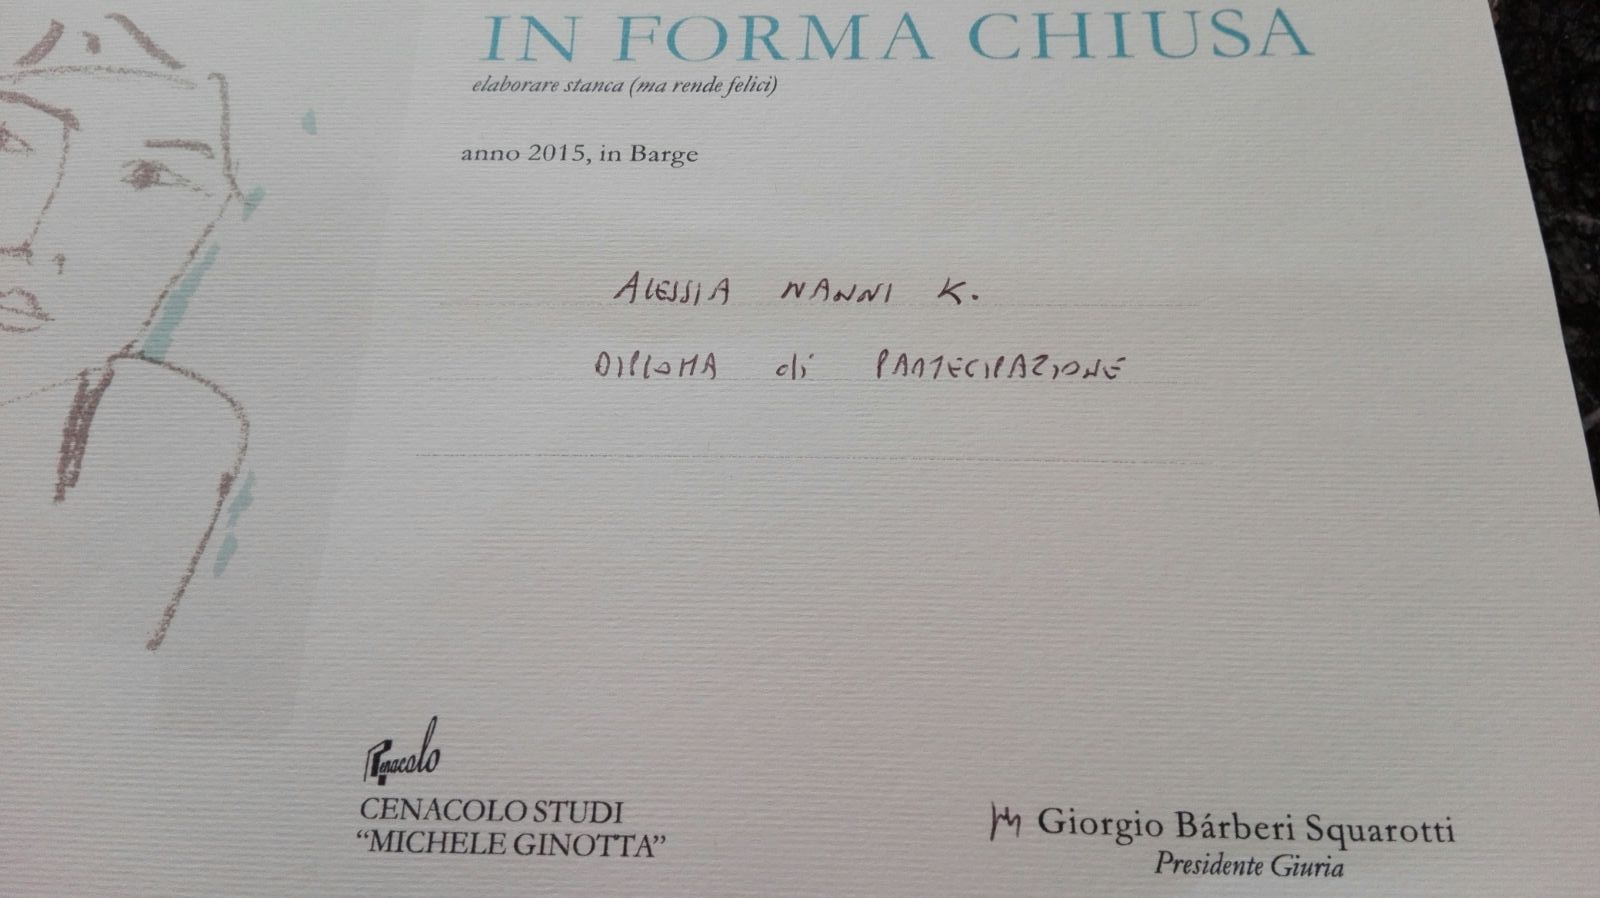 IN FORMA CHIUSA
elaborare stanca (ma rende felici)
anno 2015, in Barge
ALESSIA NANNI K.
DIPLOMA di PARTECIPAZIONE
Cenacolo
CENACOLO STUDI
“MICHELE GINOTTA”
Giorgio Bárberi Squarotti
Presidente Giuria